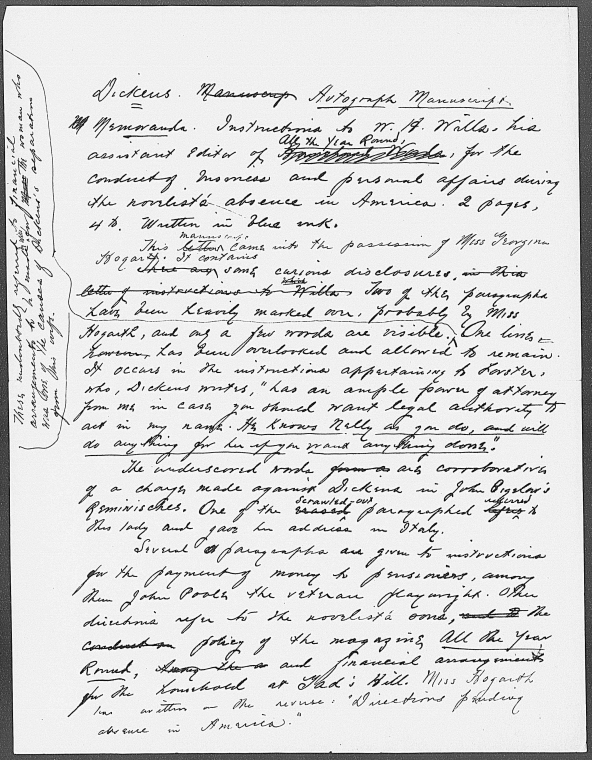 Dickens. Manuscrip Autograph Manuscript.
Memoranda. Instructions to W. H. Wills, his
All the Year Round,
assistant Editor of Household Words, for the
conduct of business and personal affairs during
the novelist's absence in America. 2 pages,
4to. Written in blue ink.
manuscript
This letter came into the possession of Miss Georgina
Hogarth. It contains
there are some curious disclosures, in this
which
letter of instructions to Wills Two of the paragraphs
have been heavily marked over, probably by Miss
Hogarth, and only a few words are visible. One line,
however, has been overlooked and allowed to remain.
It occurs in the instructions appertaining to Forster,
who, Dickens writes, "has an ample power of attorney
from me in case you should want legal authority to
act in my name. He knows Nelly as you do, and will
do anything for her if you want anything done."
The underscored words form a are corroborative
of a charge made against Dickens in John Bigelow's
scrawled-out referred
Reminisches. One of the erased paragraphed refers to
this lady and gave her address in Italy.
Several paragraphs are given to instructions
for the payment of money to pensioners, among
them John Poole the veteran playwright. Other
directions refer to the novelist's sons, and to the
conduct on policy of the magazine All the Year
Round, and financial arrangements
for the household at Gad's Hill. Miss Hogarth
has written on the reverse: "Directions pending
absence in America."
These undoubtedly referred to financial
arrangements to be made with the woman who
was one of the causes of Dickens's separation
from his wife.